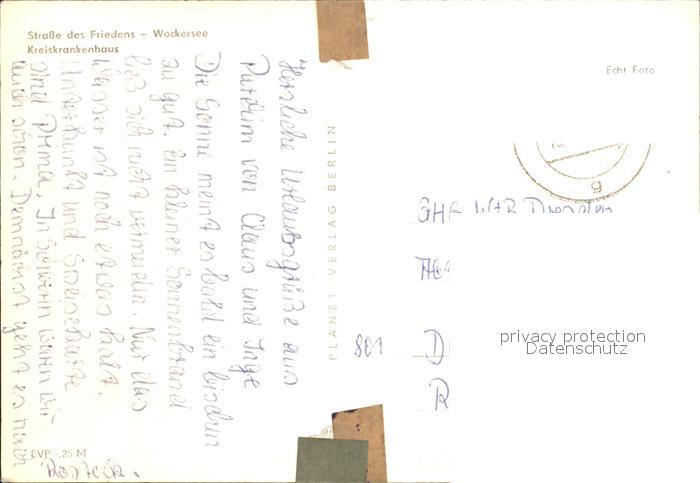 Straße des Friedens – Wockersee
Kreiskrankenhaus
Echt Foto
Herzliche Urlaubsgrüße aus
von Claus und Inge
Die Sonne meint es bald ein bischen
zu gut. Ein kleiner Sonnenbrand
ließ sich nicht vermeiden. Nur das
Wasser ist noch etwas kalt.
Unterkunft und
sind Prima, In Schwerin waren wir
auch schon. Demnächst geht es nach
Rostock.
PLANET-VERLAG BERLIN
EVP -,25 M
GHF WtB Dresden
801 D
R
privacy protection
Datenschutz